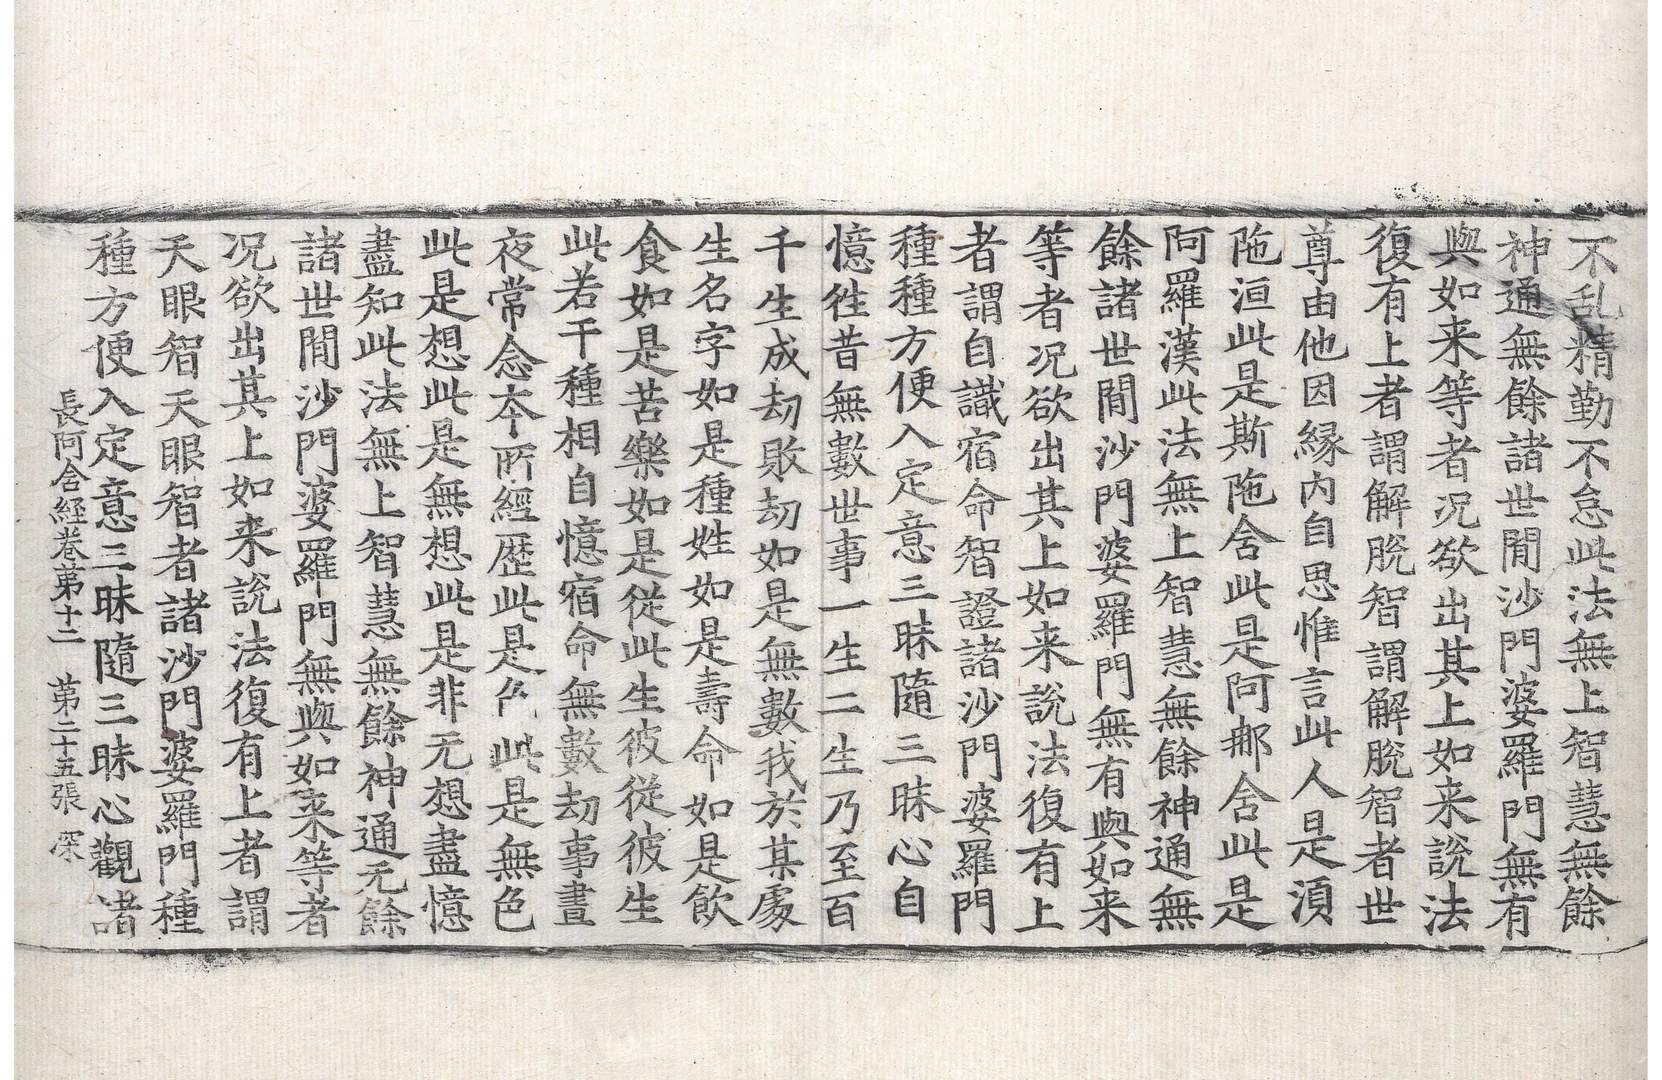 不乱精勤不怠此法無上智慧無餘
神通無餘諸世閒沙門婆羅門無有
與如来等者况欲出其上如来說法
復有上者謂解脫智謂解脫智者世
尊由他因緣內自思惟言此人是湏
陁洹此是斯陁含此是阿那含此是
阿羅漢此法無上智慧無餘神通無
餘諸世閒沙門婆羅門無有與如来
等者况欲出其上如来說法復有上
者謂自識宿命智證諸沙門婆羅門
種種方便入定意三昧隨三昧心自
憶徃昔無數世事一生二生乃至百
千生成劫敗劫如是無數我於某處
生名字如是種姓如是壽命如是飲
食如是苦樂如是從此生彼從彼生
此若干種相自憶宿命無數劫事晝
夜常念本所經歷此是色此是無色
此是想此是無想此是非无想盡憶
盡知此法無上智慧無餘神通无餘
諸世閒沙門婆羅門無與如来等者
况欲出其上如来說法復有上者謂
天眼智天眼智者諸沙門婆羅門種
種方便入定意三昧隨三昧心觀諸
長阿含經卷第十二 第二十五張 深